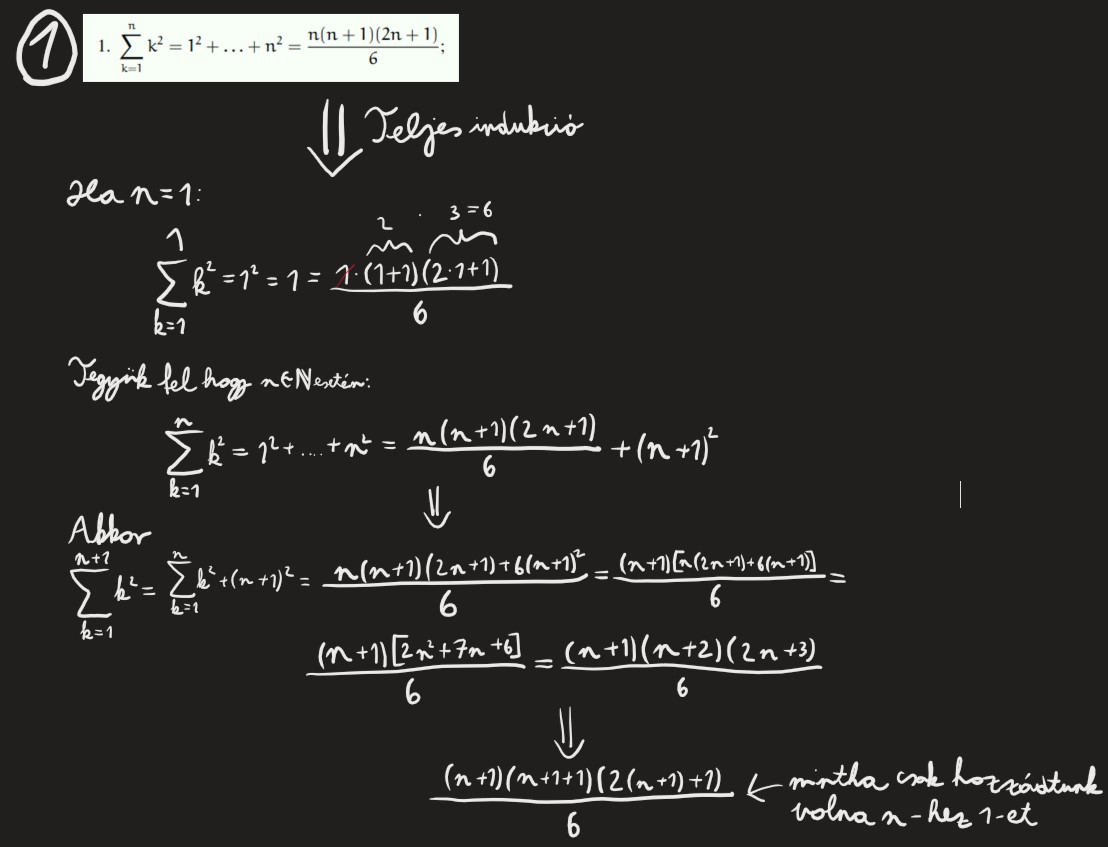 1
1. ∑_{k=1}^{n} k² = 1² + … + n² = n(n + 1)(2n + 1)/6;
⇓ Teljes indukió
Ha n=1:
2 · 3=6
∑_{k=1}^{1} k² = 1² = 1 = 1·(1+1)(2·1+1)/6
Tegyük fel hogy n∈ℕ esetén:
∑_{k=1}^{n} k² = 1²+....+n² = n(n+1)(2n+1)/6 + (n+1)²
⇓
Akkor
∑_{k=1}^{n+1} k² = ∑_{k=1}^{n} k²+(n+1)² = n(n+1)(2n+1)+6(n+1)²/6 = (n+1)[n(2n+1)+6(n+1)]/6 =
(n+1)[2n²+7n+6]/6 = (n+1)(n+2)(2n+3)/6
⇓
(n+1)(n+1+1)(2(n+1)+1)/6 ← mintha csak hozzáadtunk
volna n-hez 1-et